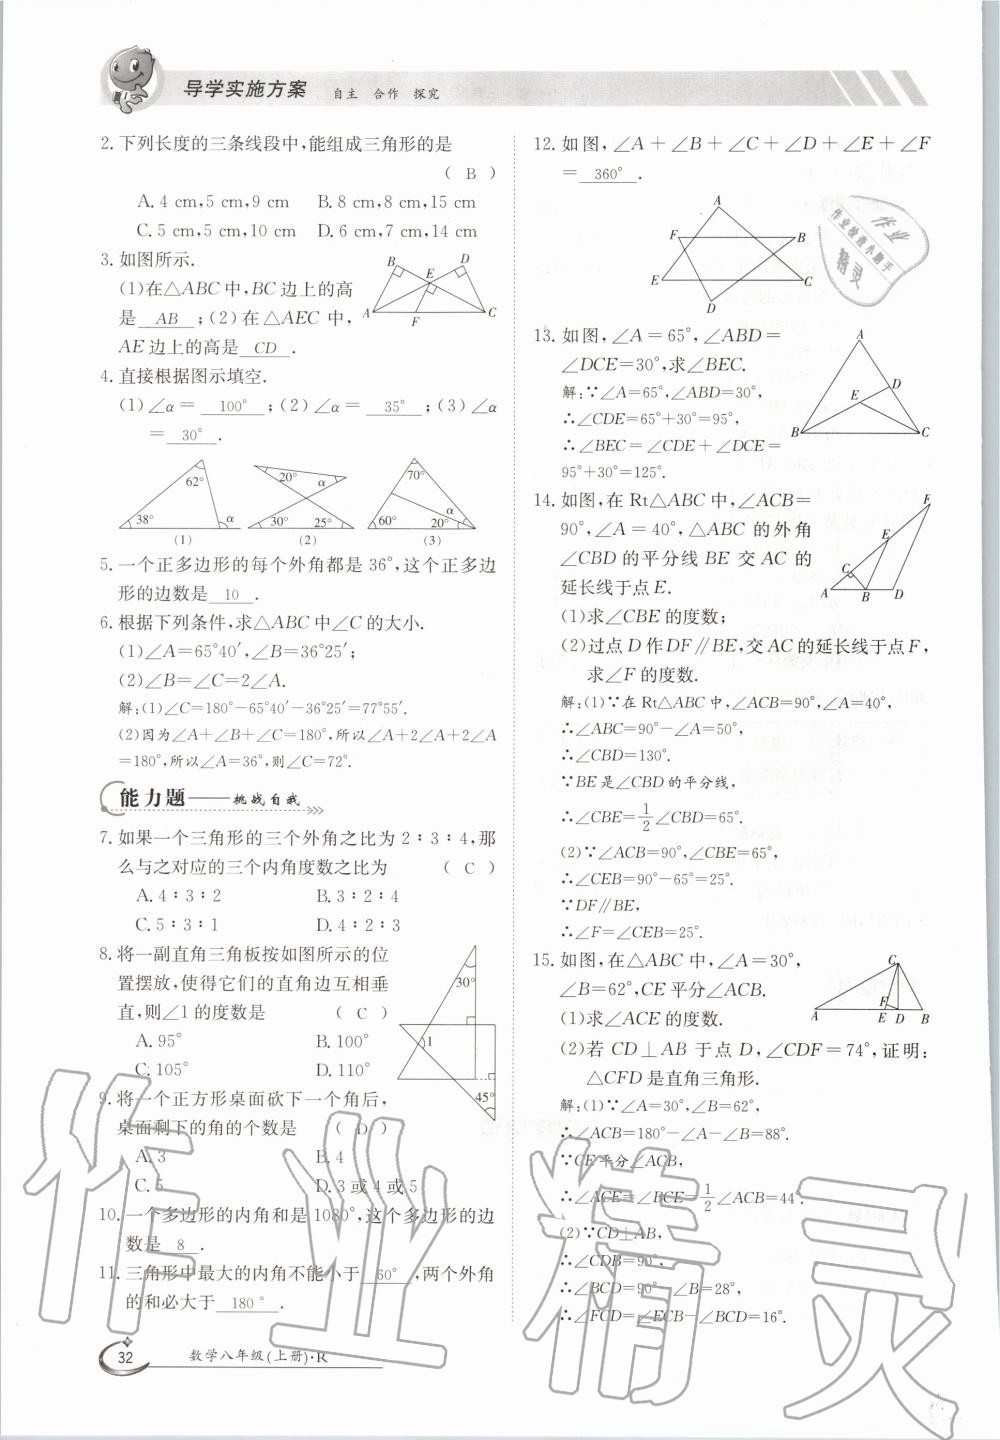 导学实施方案 自主 合作 探究
2. 下列长度的三条线段中,能组成三角形的是
( B )
A. 4 cm,5 cm,9 cm B. 8 cm,8 cm,15 cm
C. 5 cm,5 cm,10 cm D. 6 cm,7 cm,14 cm
3. 如图所示.
(1)在△ABC中,BC边上的高
是 AB ;(2)在△AEC中,
AE边上的高是 CD .
B D E A F C
4. 直接根据图示填空.
(1)∠α= 100° ;(2)∠α= 35° ;(3)∠α
= 30° .
62° 38° α (1)
20° α 30° 25° (2)
70° α 60° 20° (3)
5. 一个正多边形的每个外角都是36°,这个正多边
形的边数是 10 .
6. 根据下列条件,求△ABC中∠C的大小.
(1)∠A=65°40′,∠B=36°25′;
(2)∠B=∠C=2∠A.
解:(1)∠C=180°-65°40′-36°25′=77°55′.
(2)因为∠A+∠B+∠C=180°,所以∠A+2∠A+2∠A
=180°,所以∠A=36°,则∠C=72°.
能力题——挑战自我
7. 如果一个三角形的三个外角之比为2∶3∶4,那
么与之对应的三个内角度数之比为 ( C )
A. 4∶3∶2 B. 3∶2∶4
C. 5∶3∶1 D. 4∶2∶3
8. 将一副直角三角板按如图所示的位
置摆放,使得它们的直角边互相垂
直,则∠1的度数是 ( C )
A. 95° B. 100°
C. 105° D. 110°
30° 1 45°
9. 将一个正方形桌面砍下一个角后,
桌面剩下的角的个数是 ( D )
A. 3 B. 4
C. 5 D. 3或4或5
10. 一个多边形的内角和是1080°,这个多边形的边
数是 8 .
11. 三角形中最大的内角不能小于 60° ,两个外角
的和必大于 180° .
32 数学八年级(上册)·R
12. 如图,∠A+∠B+∠C+∠D+∠E+∠F
= 360° .
A F B E C D
作业
作业检查小助手
精灵
13. 如图,∠A=65°,∠ABD=
∠DCE=30°,求∠BEC.
解:∵∠A=65°,∠ABD=30°,
∴∠CDE=65°+30°=95°,
∴∠BEC=∠CDE+∠DCE=
95°+30°=125°.
A D E B C
14. 如图,在Rt△ABC中,∠ACB=
90°,∠A=40°,△ABC的外角
∠CBD的平分线BE交AC的
延长线于点E.
F E C A B D
(1)求∠CBE的度数;
(2)过点D作DF∥BE,交AC的延长线于点F,
求∠F的度数.
解:(1)∵在Rt△ABC中,∠ACB=90°,∠A=40°,
∴∠ABC=90°-∠A=50°,
∴∠CBD=130°.
∵BE是∠CBD的平分线,
∴∠CBE=1/2∠CBD=65°.
(2)∵∠ACB=90°,∠CBE=65°,
∴∠CEB=90°-65°=25°.
∵DF∥BE,
∴∠F=∠CEB=25°.
15. 如图,在△ABC中,∠A=30°,
∠B=62°,CE平分∠ACB.
(1)求∠ACE的度数.
(2)若CD⊥AB于点D,∠CDF=74°,证明:
△CFD是直角三角形.
C F A E D B
解:(1)∵∠A=30°,∠B=62°,
∴∠ACB=180°-∠A-∠B=88°.
∵CE平分∠ACB,
∴∠ACE=∠BCE=1/2∠ACB=44°.
(2)∵CD⊥AB,
∴∠CDB=90°.
∴∠BCD=90°-∠B=28°,
∴∠FCD=∠ECB-∠BCD=16°.
作业精灵